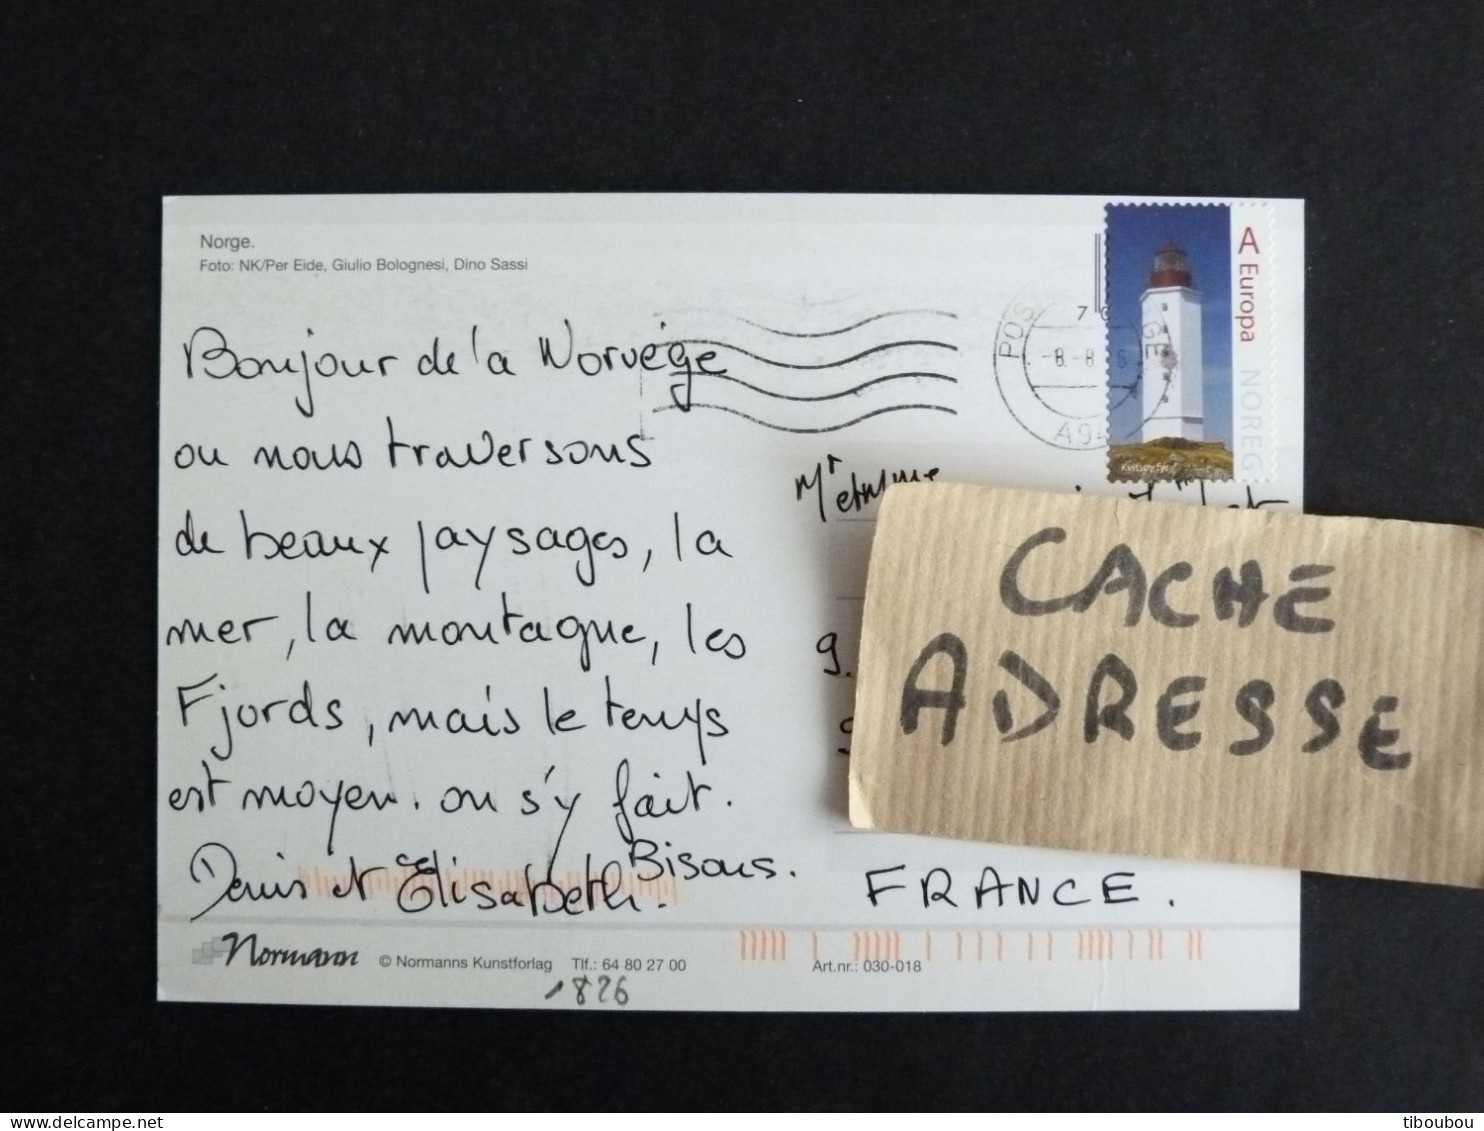 Norge.
Foto: NK/Per Eide, Giulio Bolognesi, Dino Sassi
Bonjour de la Norvége
ou nous traversons
de beaux paysages, la
mer, la montagne, les
Fjords, mais le temps
est moyen. on s'y fait.
Bisous.
Denis et Elisabeth.
A Europa
NOREG
Kvitsøy fyr
-8.-8
A94
Mr et Mme
9.
CACHE
ADRESSE
FRANCE.
Normann © Normanns Kunstforlag Tlf.: 64 80 27 00 Art.nr.: 030-018
1826
delcampe.net
tiboubou